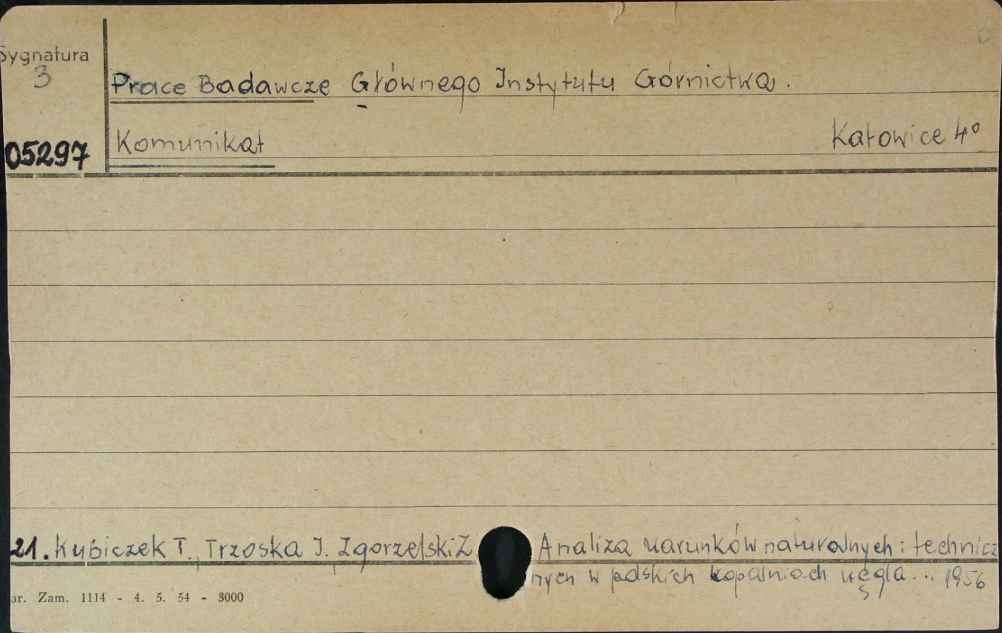 Sygnatura
3
Prace Badawcze Głównego Instytutu Górnictwa.
05297
Komunikat
Katowice 4°
21. Kubiczek T., Trzoska J. Zgorzelski Z. Analiza warunków naturalnych i technicz
nych w polskich kopalniach węgla... 1956
ar. Zam. 1114 - 4. 5. 54 - 3000